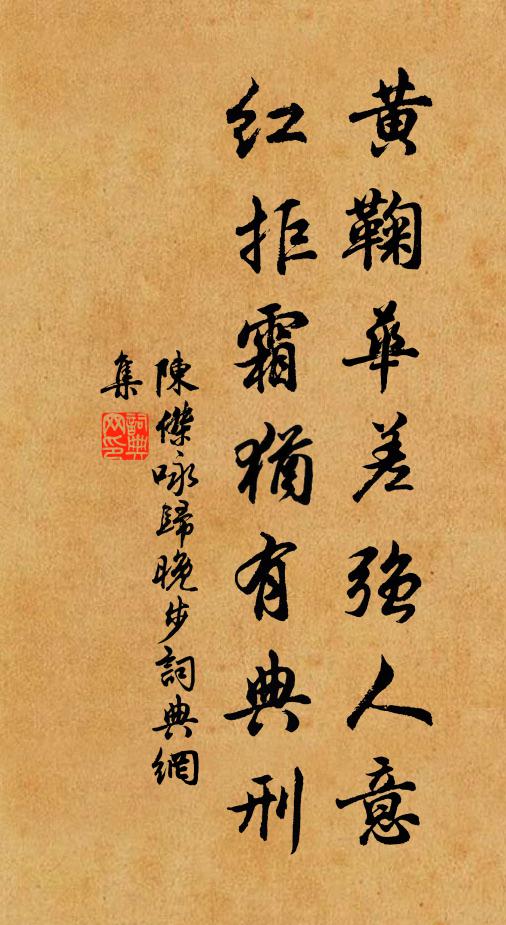 黃鞠華差強人意
紅拒霜猶有典刑
陳傑咏歸晚步詞典網
集
詞典网印